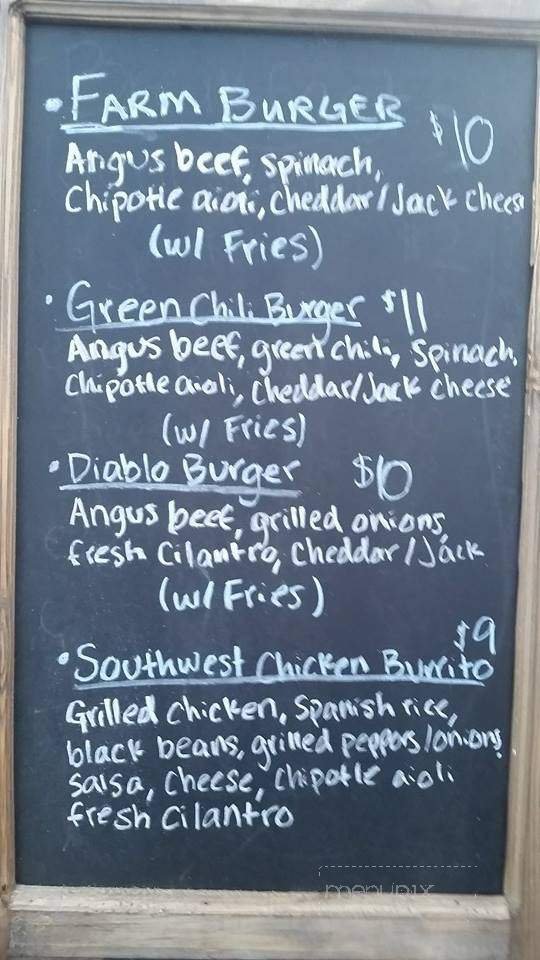 • FARM BURGER
$10
Angus beef, spinach,
Chipotle aioli, cheddar/Jack cheese
(w/ Fries)
• Green Chili Burger $11
Angus beef, green chili, Spinach,
Chipotle aioli, cheddar/Jack cheese
(w/ Fries)
• Diablo Burger $10
Angus beef, grilled onions,
fresh Cilantro, Cheddar/Jack
(w/ Fries)
$9
• Southwest Chicken Burrito
Grilled chicken, Spanish rice,
black beans, grilled peppers/onions,
salsa, cheese, chipotle aioli
fresh cilantro
menupix